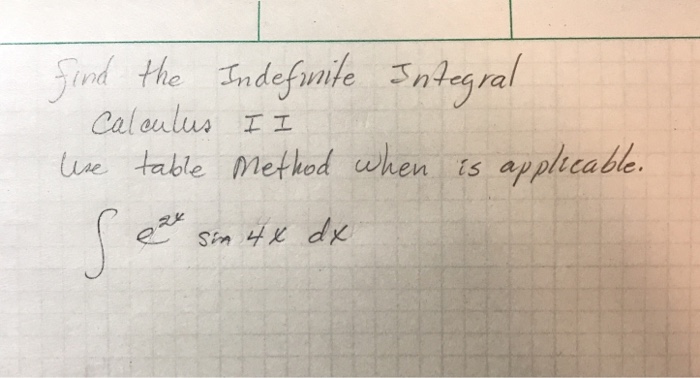 Find the Indefinite Integral
Calculus II
Use table Method when is applicable.
∫ e^{2x} sin 4x dx